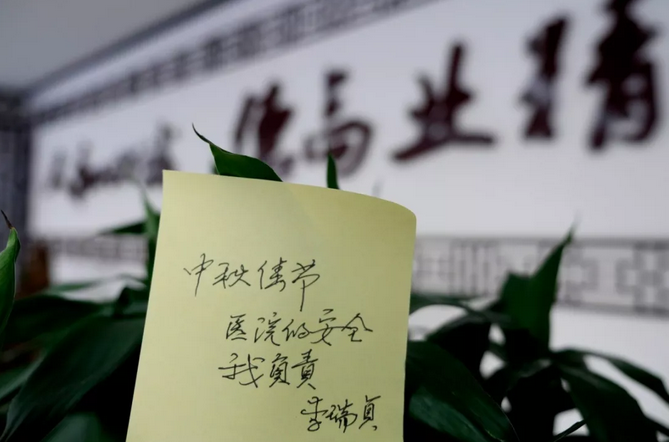 业高德
中秋佳节
医院的安全
我负责
李瑞贞